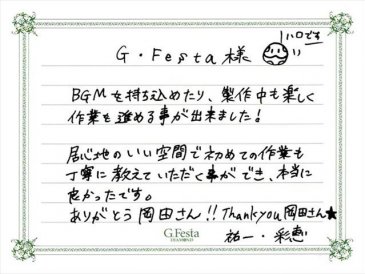 い口です
G・Festa 様
BGMを持ち込めたり、製作中も楽しく
作業を進める事が出来ました!
居心地のいい空間で初めての作業も
丁寧に教えていただく事ができ、本当に
良かったです。
ありがとう岡田さん!!Thank you 岡田さん★
祐一・彩恵
G.Festa
DIAMOND